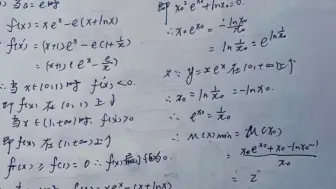 当a=e时
f(x)=xe^x-e(x+lnx)
f'(x)=(x+1)e^x-e(1+1/x)
=(x+1)(e^x-e/x)
∴当x∈(0,1)时 f'(x)<0.
即f(x)在(0,1)上↓
当x∈(1,+∞)时, f'(x)>0
即f(x)在(1,+∞)上↑
f(x)≥f(1)=0
=xe^x-(x+lnx)
即x₀²e^{x₀}+lnx₀=0.
∴x₀e^{x₀}=-lnx₀/x₀
=ln(1/x₀)e^{ln(1/x₀)}
又∵y=xe^x在(0,+∞)上↑
∴x₀=ln(1/x₀)=-lnx₀.
∴e^{x₀}=1/x₀
∴u(x)min=u(x₀)
=(x₀e^{x₀}+x₀-lnx₀-1)/x₀
=2